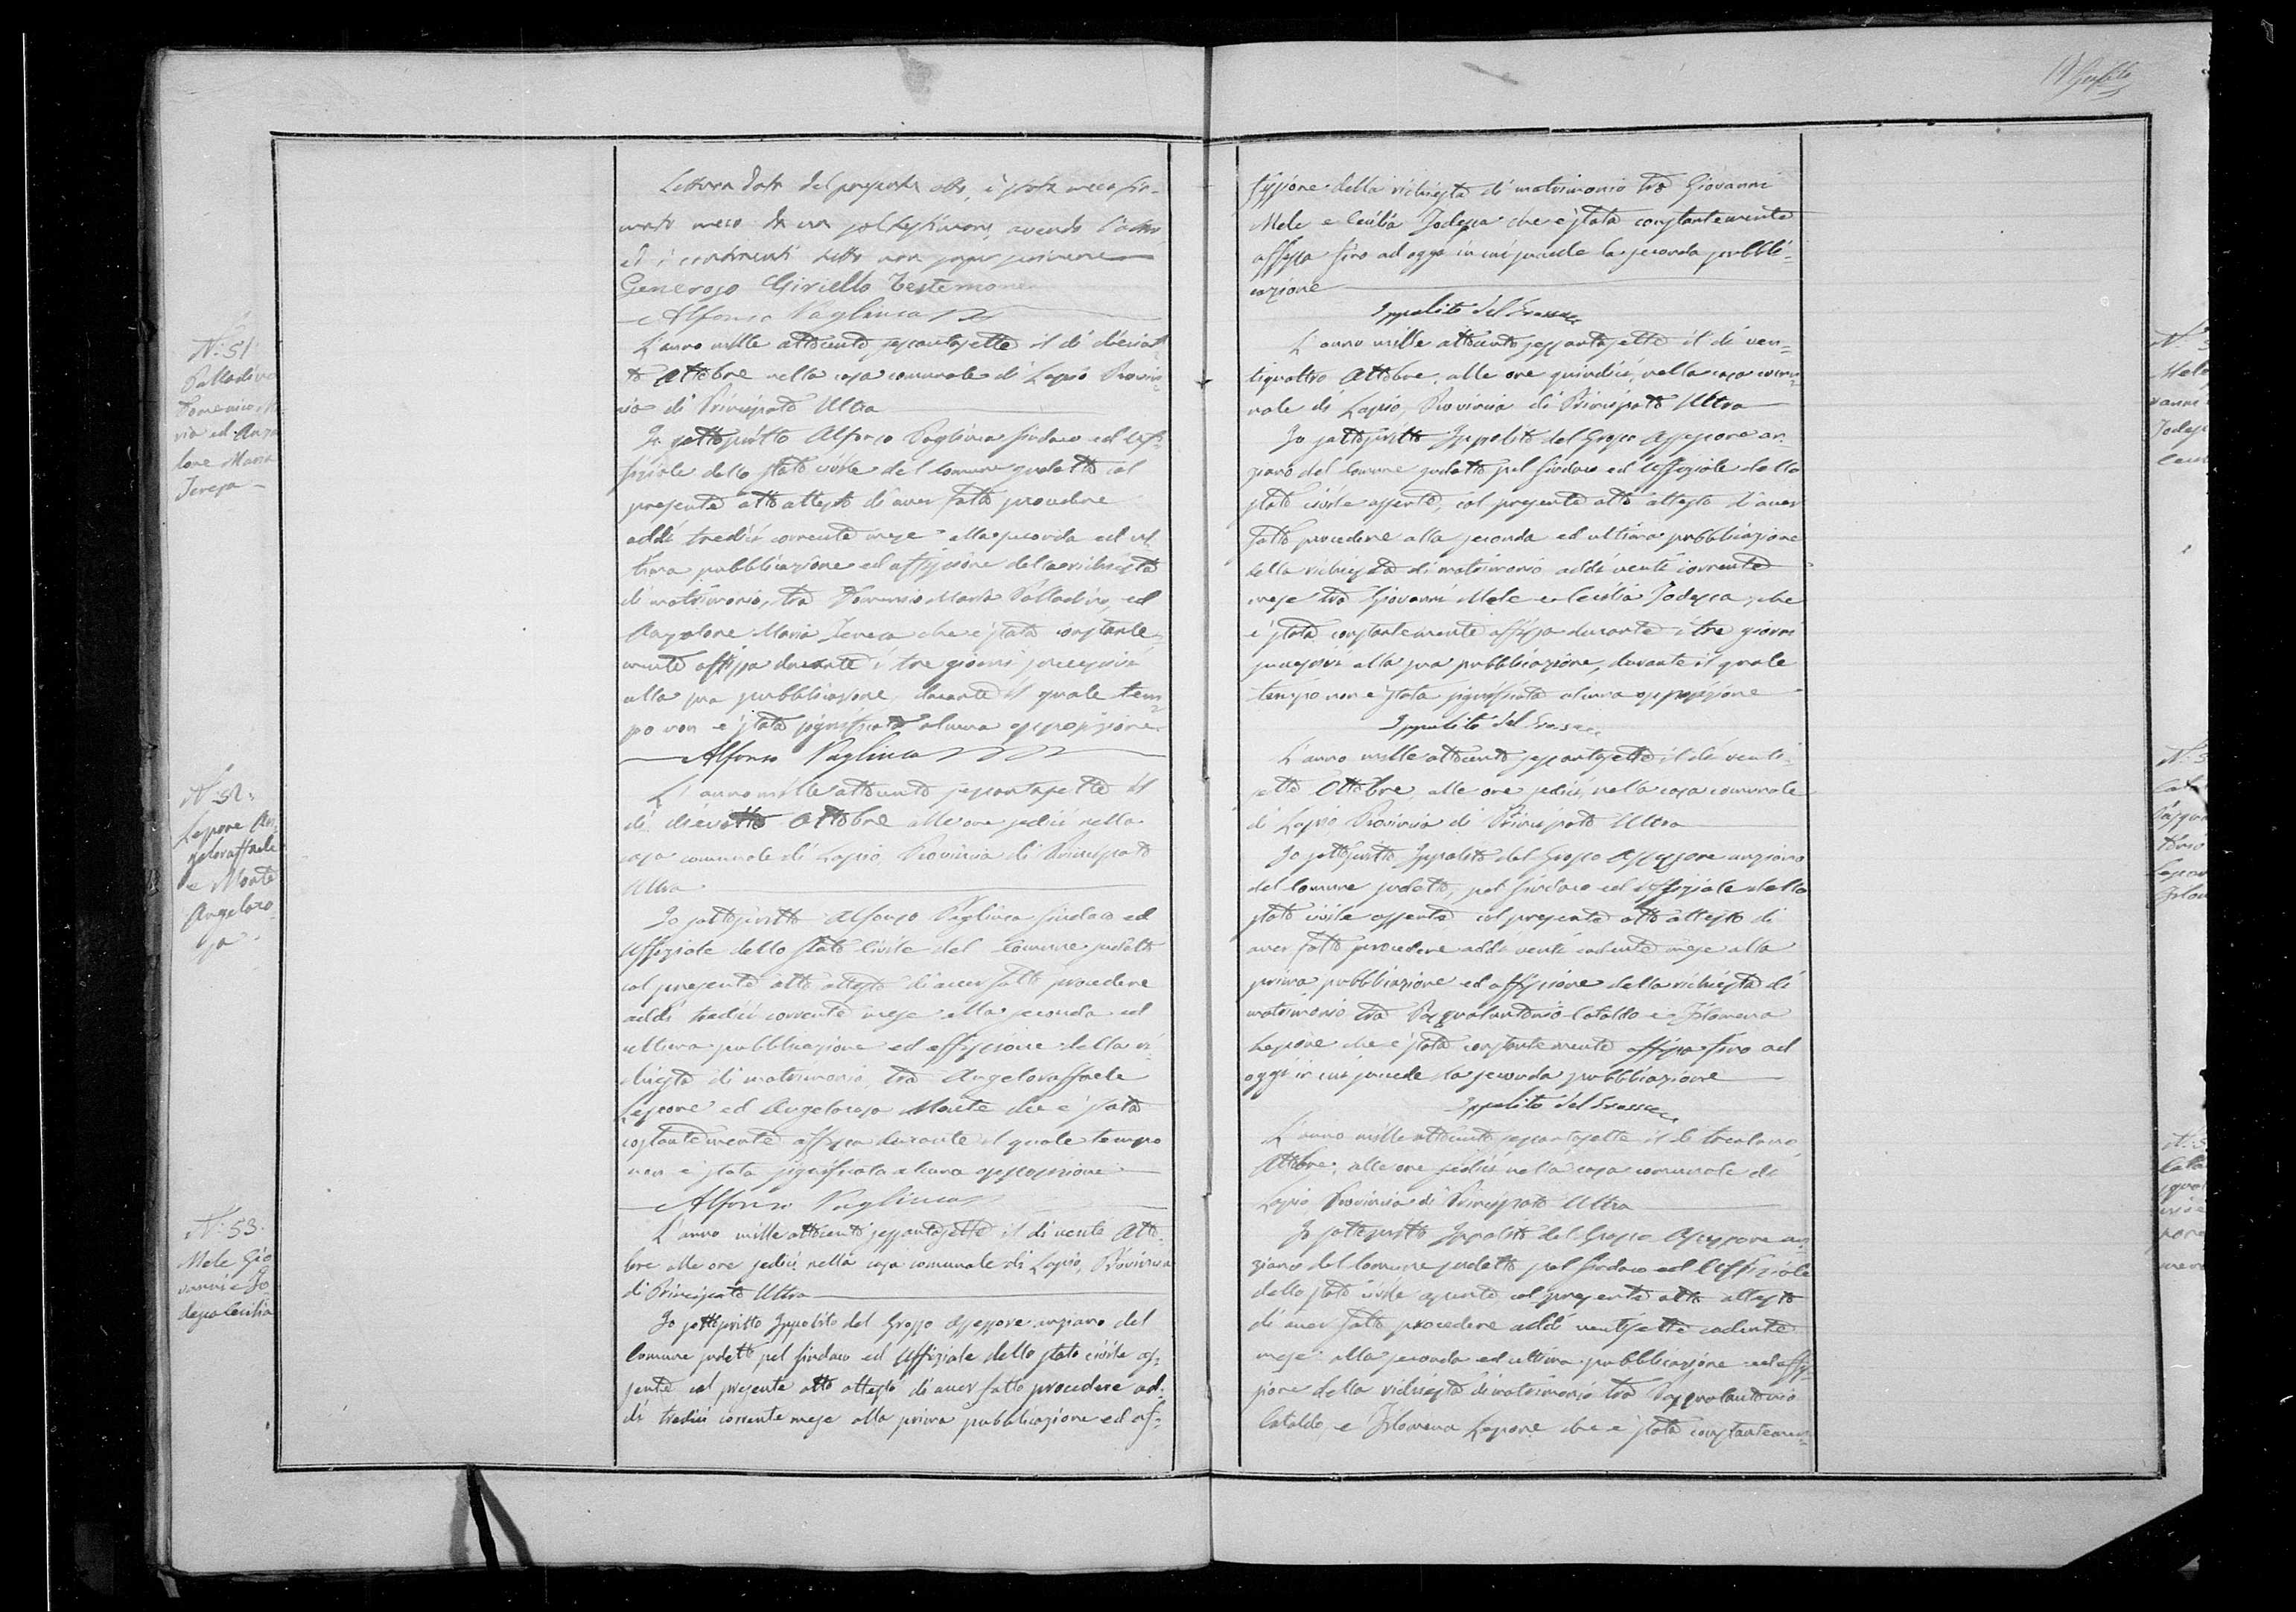 Lettura data del presente atto, è stato meco fir-
mato meco da un sol testimone, avendo l'altro
ed i contraenti detto non saper scrivere
Generoso Ciriello Testimone
Alfonso Pagliuca
N. 51
Palladino
Domenico M.
ria ed Anza
lone Maria
Teresa
L'anno mille ottocento sessantasette il dì diciot
to Ottobre nella casa comunale di Lapio Provin=
cia di Principato Ultra
Io sottoscritto Alfonso Pagliuca Sindaco ed Uf=
fiziale dello stato civile del Comune sudetto col
presente atto attesto di aver fatto procedere
addì tredici corrente mese alla seconda ed ul
tima pubblicazione ed affissione della richiesta
di matrimonio, tra Domenico Maria Palladino, ed
Anzalone Maria Teresa che è stata constante
mente affissa durante i tre giorni successivi
alla sua pubblicazione durante il quale tem
po non è stata significata alcuna opposizione
Alfonso Pagliuca
N. 52.
Lepore An
geloraffaele
e Monte
Angelaro
sa
L'anno mille ottocento sessantasette il
dì dieciotto Ottobre alle ore sedici nella
casa comunale di Lapio, Provincia di Principato
Ultra
Io sottoscritto Alfonso Pagliuca Sindaco ed
Uffiziale dello Stato Civile del Comune sudetto
col presente atto attesto di aver fatto procedere
addì tredici corrente mese alla seconda ed
ultima pubblicazione ed affissione della ri
chiesta di matrimonio, tra Angeloraffaele
Lepore ed Angelarosa Monte che è stata
costantemente affissa durante il quale tempo
non è stata significata alcuna opposizione
Alfonso Pagliuca
N. 53.
Mele Gio
vanni e Jo
dessa Cecilia
L'anno mille ottocento sessantasette il dì venti Otto
bre alle ore sedici nella casa comunale di Lapio, Provincia
di Principato Ultra
Io sottoscritto Ippolito del Grosso Assessore anziano del
Comune sudetto pel Sindaco ed Uffiziale dello stato civile as=
sente col presente atto attesto di aver fatto procedere ad=
dì tredici corrente mese alla prima pubblicazione ed af=
fissione della richiesta di matrimonio tra Giovanni
Mele e Cecilia Jodessa che è stata constantemente
affissa fino ad oggi in cui succede la seconda pubbli=
cazione
Ippolito del Grosso
L'anno mille ottocento sessantasette il dì ven=
tiquattro Ottobre, alle ore quindici, nella casa comu=
nale di Lapio, Provincia di Principato Ultra
Io sottoscritto Ippolito del Grosso Assessore an
ziano del Comune sudetto pel Sindaco ed Uffiziale dello
stato civile assente, col presente atto attesto d'aver
fatto procedere alla seconda ed ultima pubblicazione
della richiesta di matrimonio addì venti corrente
mese tra Giovanni Mele e Cecilia Jodessa, che
è stata constantemente affissa durante i tre giorni
successivi alla sua pubblicazione, durante il quale
tempo non è stata significata alcuna opposizione
Ippolito del Grosso
L'anno mille ottocento sessantasette il dì venti
sette Ottobre, alle ore sedici, nella casa comunale
di Lapio Provincia di Principato Ultra
Io sottoscritto Ippolito del Grosso Assessore anziano
del Comune sudetto, pel Sindaco ed Uffiziale dello
stato civile assente col presente atto attesto di
aver fatto procedere addì venti cadente mese alla
prima pubblicazione ed affissione della richiesta di
matrimonio tra Pasqualantonio Cataldo e Filomena
Lepore che è stata constantemente affissa fino ad
oggi in cui succede la seconda pubblicazione
Ippolito del Grosso
L'anno mille ottocento sessantasette il dì trentuno
Ottobre, alle ore sedici nella casa comunale di
Lapio, Provincia di Principato Ultra
Io sottoscritto Ippolito del Grosso Assessore an
ziano del Comune sudetto pel Sindaco ed Uffiziale
dello stato civile assente col presente atto attesto
di aver fatto procedere addì ventisette cadente
mese alla seconda ed ultima pubblicazione ed affis=
sione della richiesta di matrimonio tra Pasqualantonio
Cataldo, e Filomena Lepore che è stata constantemen=